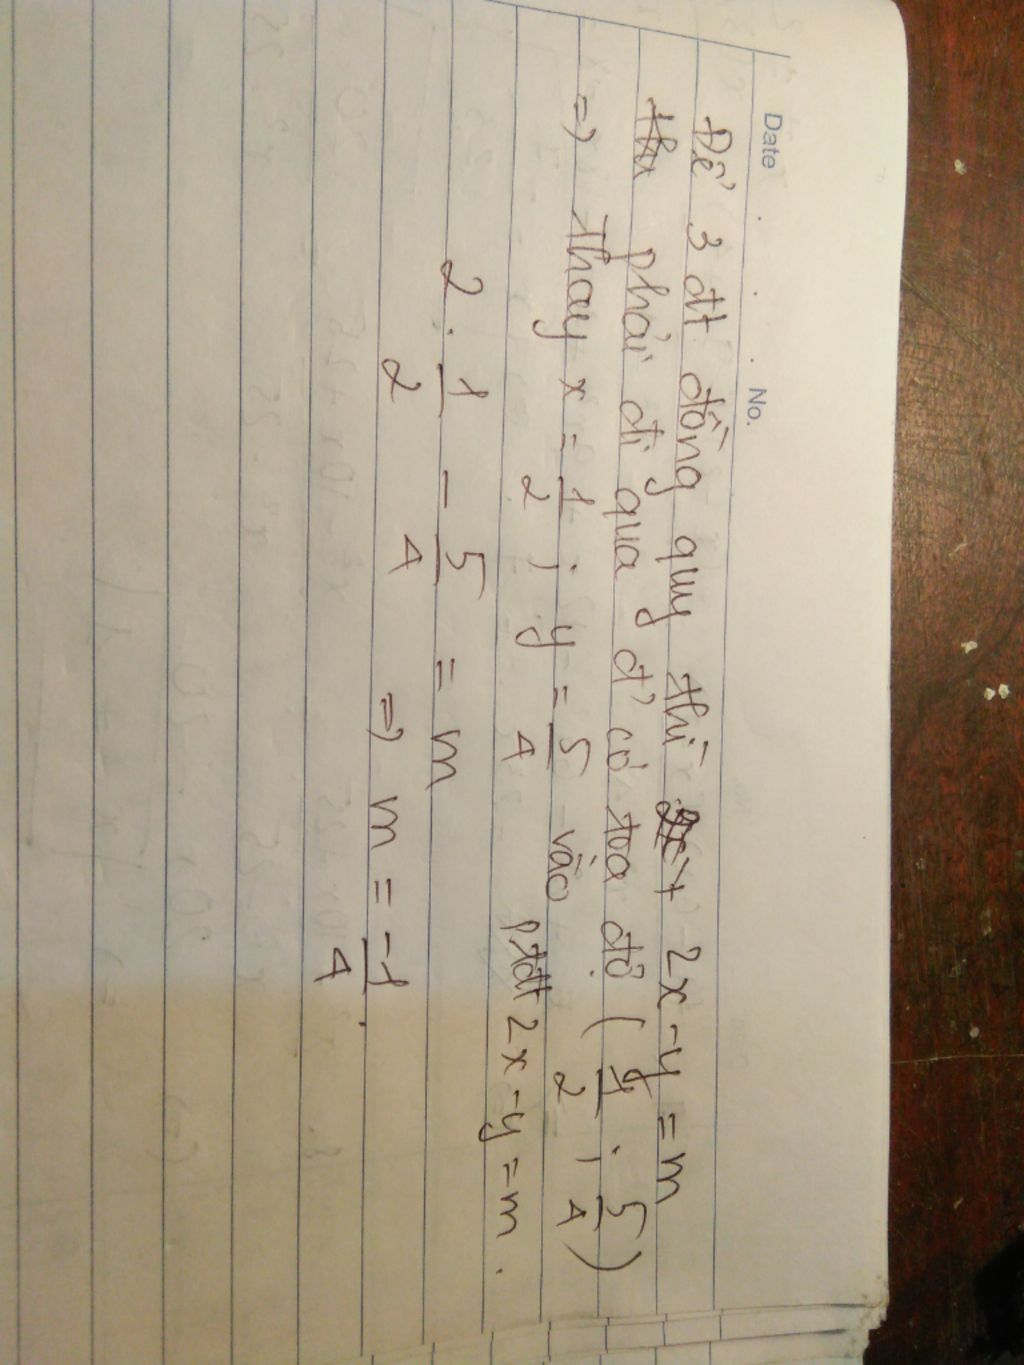 Date . . . No.
Để 3 đt đồng quy thì 2x - y = m
phải đi qua đ' có toạ độ (1/2 ; 5/4)
=> Thay x = 1/2 ; y = 5/4 vào
ptđt 2x - y = m .
2 . 1/2 - 5/4 = m
=> m = -1/4 .